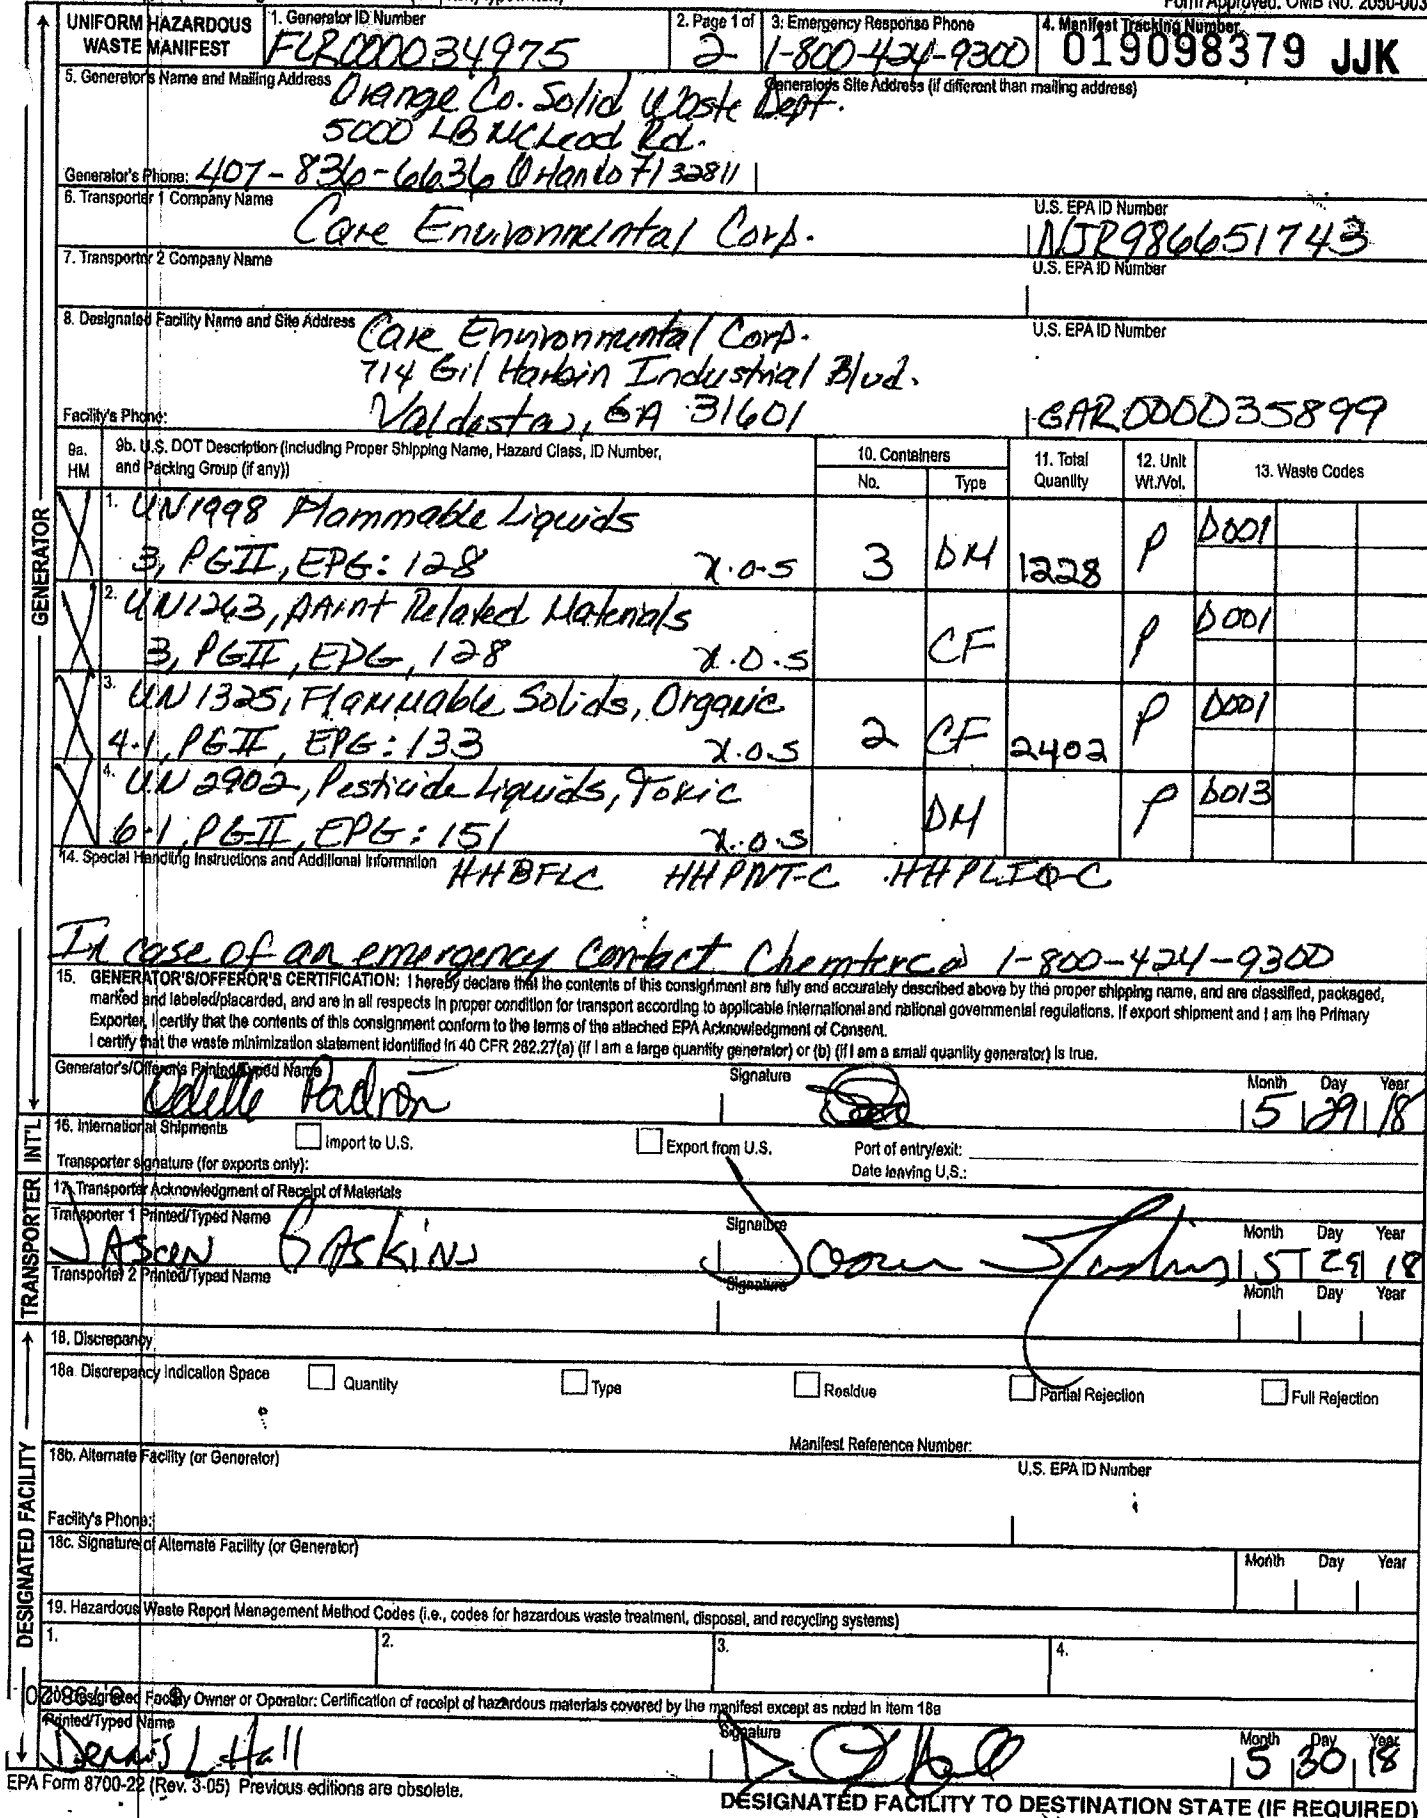 Form Approved. OMB No. 2050-003
UNIFORM HAZARDOUS WASTE MANIFEST
1. Generator ID Number
FLR000034975
2. Page 1 of
2
3. Emergency Response Phone
1-800-424-9300
4. Manifest Tracking Number
019098379 JJK
5. Generator's Name and Mailing Address
Orange Co. Solid Waste Dept.
5000 LB McLeod Rd.
Generator's Site Address (if different than mailing address)
Generator's Phone: 407-836-6636 Orlando Fl 32811
6. Transporter 1 Company Name
Care Environmental Corp.
U.S. EPA ID Number
NJR986651743
7. Transporter 2 Company Name
U.S. EPA ID Number
8. Designated Facility Name and Site Address
Care Environmental Corp.
714 Gil Harbin Industrial Blvd.
Valdosta, GA 31601
U.S. EPA ID Number
GAR000035899
Facility's Phone:
9a. HM
9b. U.S. DOT Description (including Proper Shipping Name, Hazard Class, ID Number,
and Packing Group (if any))
10. Containers
No.
Type
11. Total Quantity
12. Unit Wt./Vol.
13. Waste Codes
X 1. UN1998 Flammable Liquids
3, PGII, EPG: 128 n.o.s 3 DM 1228 P D001
X 2. UN1263, PAint Related Materials
3, PGII, EPG, 128 n.o.s CF P D001
X 3. UN1325, Flammable Solids, Organic
4.1, PGII, EPG: 133 n.o.s 2 CF 2402 P D001
X 4. UN2902, Pesticide Liquids, Toxic
6.1, PGII, EPG: 151 n.o.s DM P D013
14. Special Handling Instructions and Additional Information
HHBFLC HHPNT-C HHPLIQ-C
In case of an emergency contact Chemterc@ 1-800-424-9300
15. GENERATOR'S/OFFEROR'S CERTIFICATION: I hereby declare that the contents of this consignment are fully and accurately described above by the proper shipping name, and are classified, packaged,
marked and labeled/placarded, and are in all respects in proper condition for transport according to applicable international and national governmental regulations. If export shipment and I am the Primary
Exporter, I certify that the contents of this consignment conform to the terms of the attached EPA Acknowledgment of Consent.
I certify that the waste minimization statement identified in 40 CFR 262.27(a) (if I am a large quantity generator) or (b) (if I am a small quantity generator) is true.
Generator's/Offeror's Printed/Typed Name
Odette Padron
Signature
Month Day Year
5 29 18
16. International Shipments
Import to U.S.
Export from U.S.
Port of entry/exit:
Transporter signature (for exports only):
Date leaving U.S.:
17. Transporter Acknowledgment of Receipt of Materials
Transporter 1 Printed/Typed Name
JAson GAskins
Signature
Month Day Year
5 29 18
Transporter 2 Printed/Typed Name
Signature
Month Day Year
18. Discrepancy
18a. Discrepancy Indication Space
Quantity
Type
Residue
Partial Rejection
Full Rejection
Manifest Reference Number:
18b. Alternate Facility (or Generator)
U.S. EPA ID Number
Facility's Phone:
18c. Signature of Alternate Facility (or Generator)
Month Day Year
19. Hazardous Waste Report Management Method Codes (i.e., codes for hazardous waste treatment, disposal, and recycling systems)
1.
2.
3.
4.
20. Designated Facility Owner or Operator: Certification of receipt of hazardous materials covered by the manifest except as noted in Item 18a
Printed/Typed Name
Dennis L Hall
Signature
Month Day Year
5 30 18
EPA Form 8700-22 (Rev. 3-05) Previous editions are obsolete.
DESIGNATED FACILITY TO DESTINATION STATE (IF REQUIRED)
GENERATOR
INT'L
TRANSPORTER
DESIGNATED FACILITY